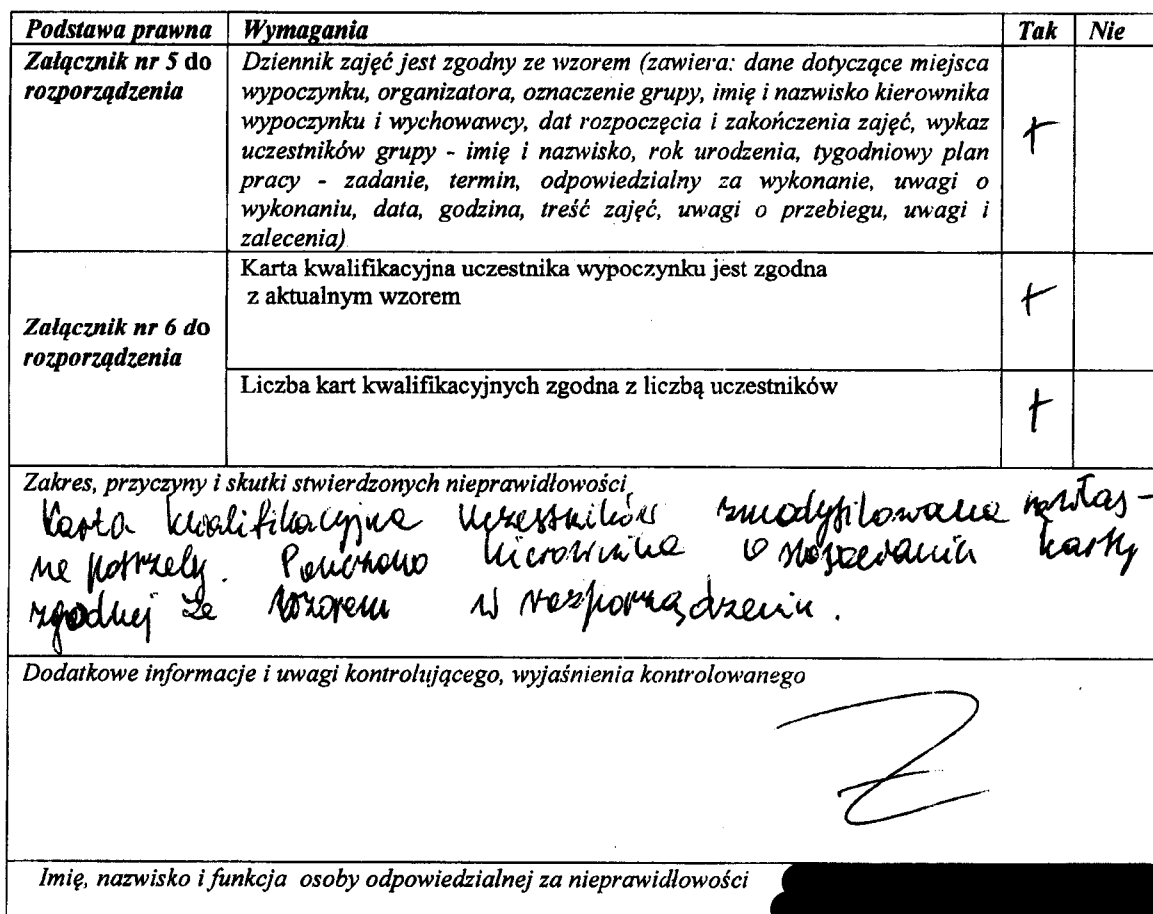 Podstawa prawna Wymagania Tak Nie
Załącznik nr 5 do rozporządzenia
Dziennik zajęć jest zgodny ze wzorem (zawiera: dane dotyczące miejsca
wypoczynku, organizatora, oznaczenie grupy, imię i nazwisko kierownika
wypoczynku i wychowawcy, dat rozpoczęcia i zakończenia zajęć, wykaz
uczestników grupy - imię i nazwisko, rok urodzenia, tygodniowy plan
pracy - zadanie, termin, odpowiedzialny za wykonanie, uwagi o
wykonaniu, data, godzina, treść zajęć, uwagi o przebiegu, uwagi i
zalecenia)
+
Załącznik nr 6 do
rozporządzenia
Karta kwalifikacyjna uczestnika wypoczynku jest zgodna
z aktualnym wzorem
+
Liczba kart kwalifikacyjnych zgodna z liczbą uczestników
+
Zakres, przyczyny i skutki stwierdzonych nieprawidłowości
Karta kwalifikacyjna uczestników zmodyfikowana na włas-
ne potrzeby. Pouczono kierownika o karty
zgodnej ze wzorem w rozporządzeniu.
Dodatkowe informacje i uwagi kontrolującego, wyjaśnienia kontrolowanego
Imię, nazwisko i funkcja osoby odpowiedzialnej za nieprawidłowości